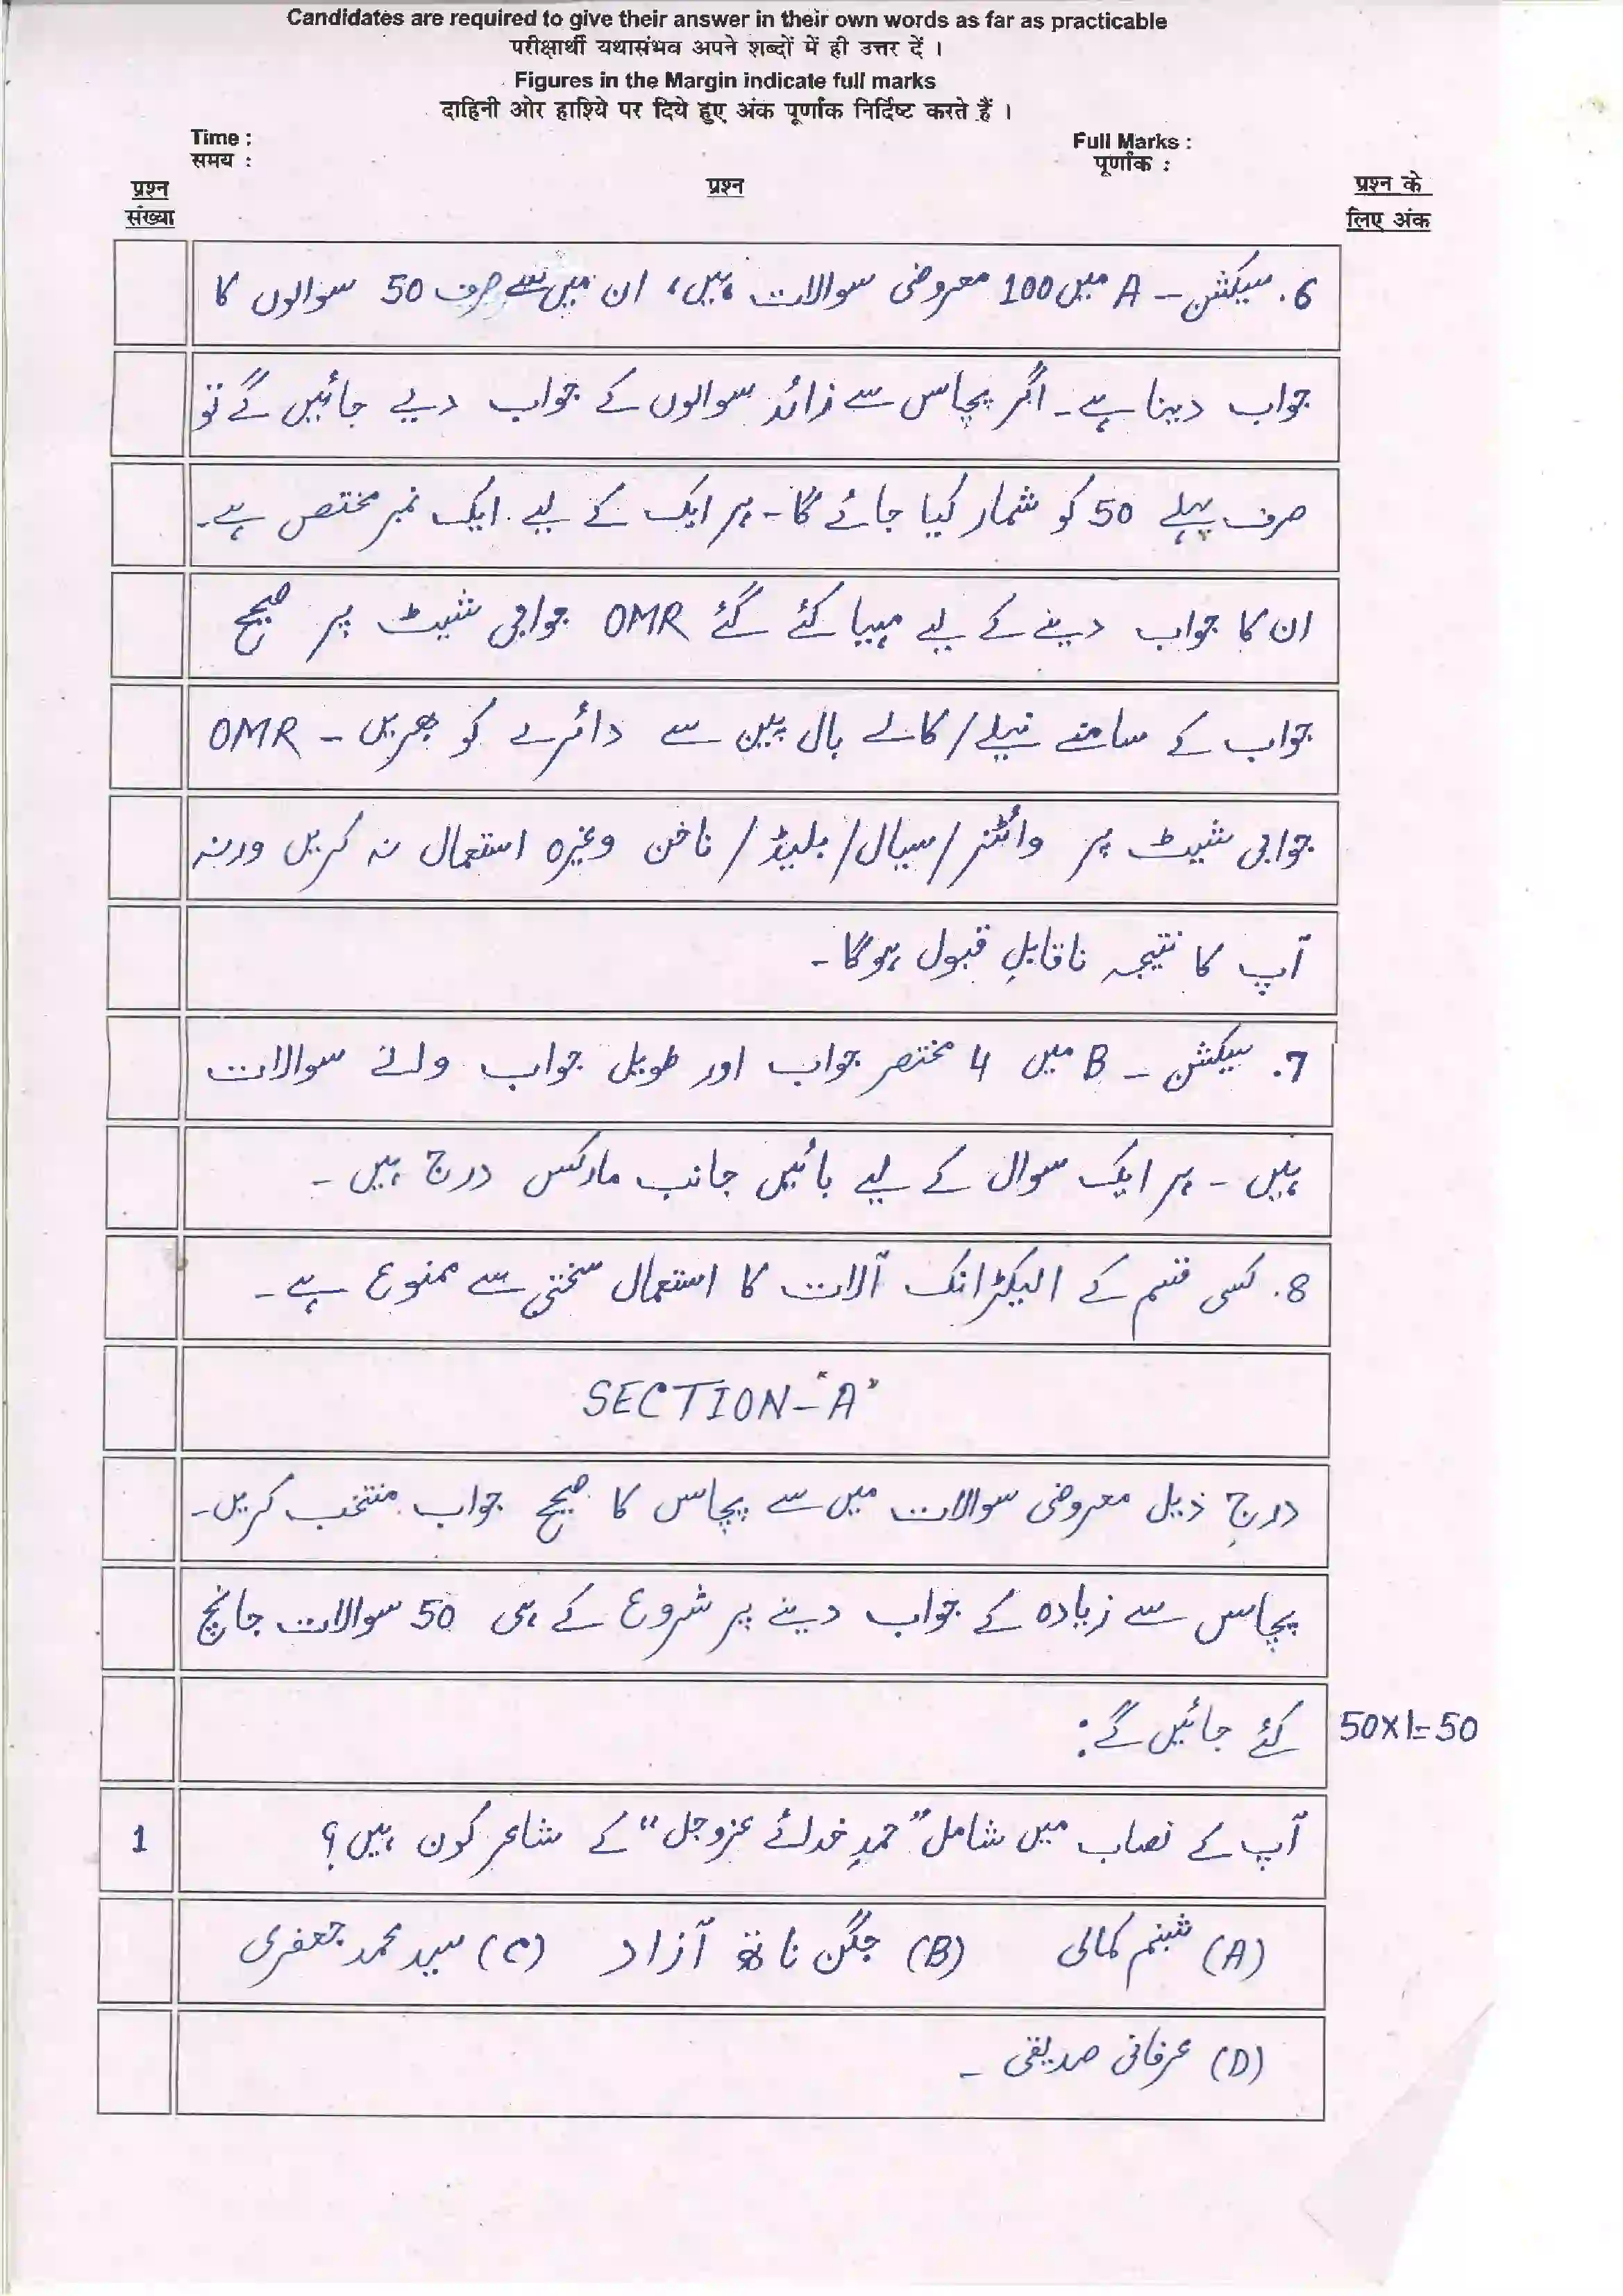 Candidates are required to give their answer in their own words as far as practicable
परीक्षार्थी यथासंभव अपने शब्दों में ही उत्तर दें ।
Figures in the Margin indicate full marks
दाहिनी ओर हाशिये पर दिये हुए अंक पूर्णांक निर्दिष्ट करते हैं ।
Time :
Full Marks :
समय :
पूर्णांक :
प्रश्न संख्या
प्रश्न
प्रश्न के लिए अंक
6. سیکشن - A میں 100 معروضی سوالات ہیں، ان میں سے صرف 50 سوالوں کا
جواب دینا ہے۔ اگر پچاس سے زائد سوالوں کے جواب دیے جائیں گے تو
صرف پہلے 50 کو شمار کیا جائے گا۔ ہر ایک کے لیے ایک نمبر مختص ہے۔
ان کا جواب دینے کے لیے مہیا کئے گئے OMR جوابی شیٹ پر صحیح
جواب کے سامنے نیلے/کالے بال پین سے دائرے کو بھریں - OMR
جوابی شیٹ پر وائٹنر/سیال/بلیڈ/ناخن وغیرہ استعمال نہ کریں ورنہ
آپ کا نتیجہ ناقابلِ قبول ہوگا۔
7. سیکشن - B میں 4 مختصر جواب اور طویل جواب والے سوالات
ہیں - ہر ایک سوال کے لیے بائیں جانب مارکس درج ہیں -
8. کسی قسم کے الیکٹرانک آلات کا استعمال سختی سے ممنوع ہے -
SECTION-"A"
درجِ ذیل معروضی سوالات میں سے پچاس کا صحیح جواب منتخب کریں۔
پچاس سے زیادہ کے جواب دینے پر شروع کے ہی 50 سوالات جانچ
کئے جائیں گے: 50×1=50
1 آپ کے نصاب میں شامل "حمدِ خدائے عزوجل" کے شاعر کون ہیں؟
(A) شبنم کمالی (B) جگن ناتھ آزاد (C) سید محمد جعفری
(D) عرفان صدیقی -